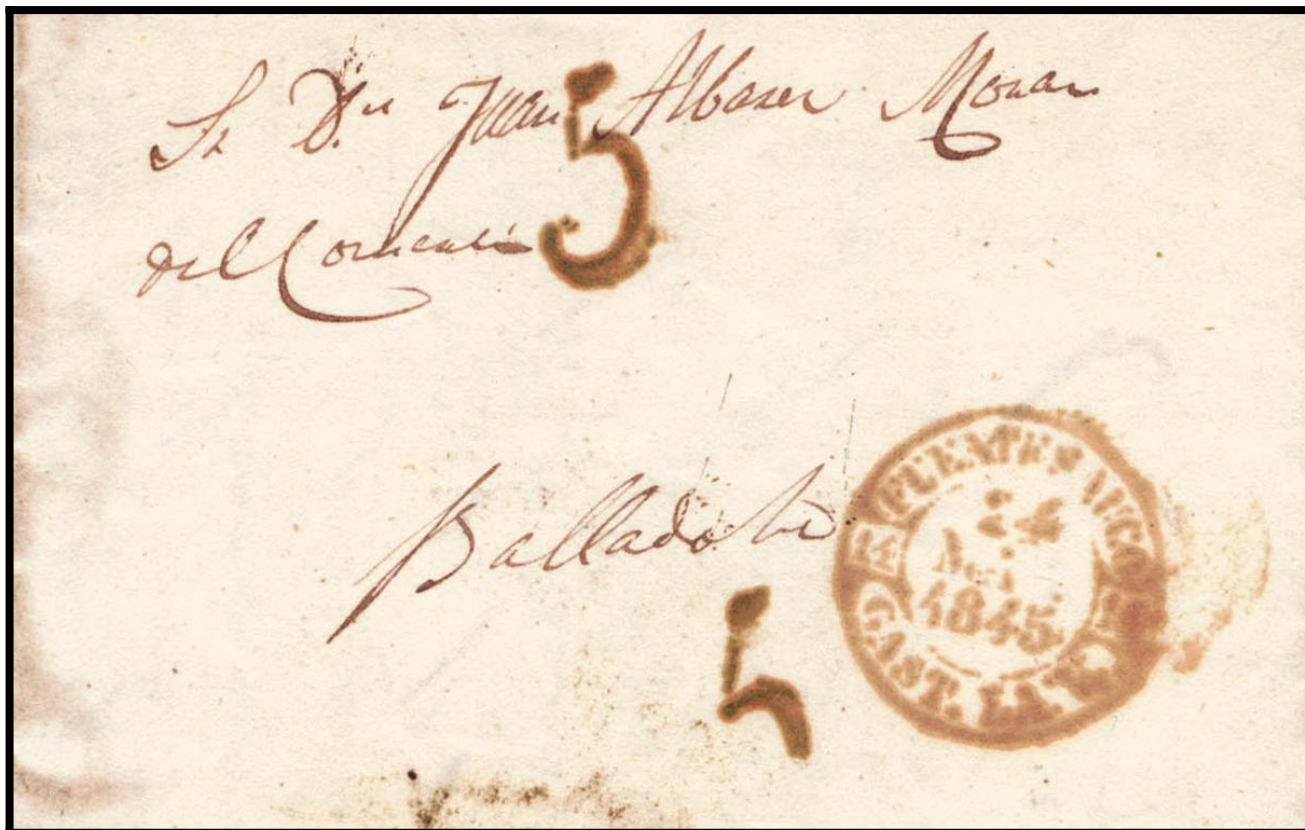 Sr Dn Juan Albarer Moran
del Comercio
5
Balladolid
5
FUENTESAUCO
24
1845
CAST. LA V.